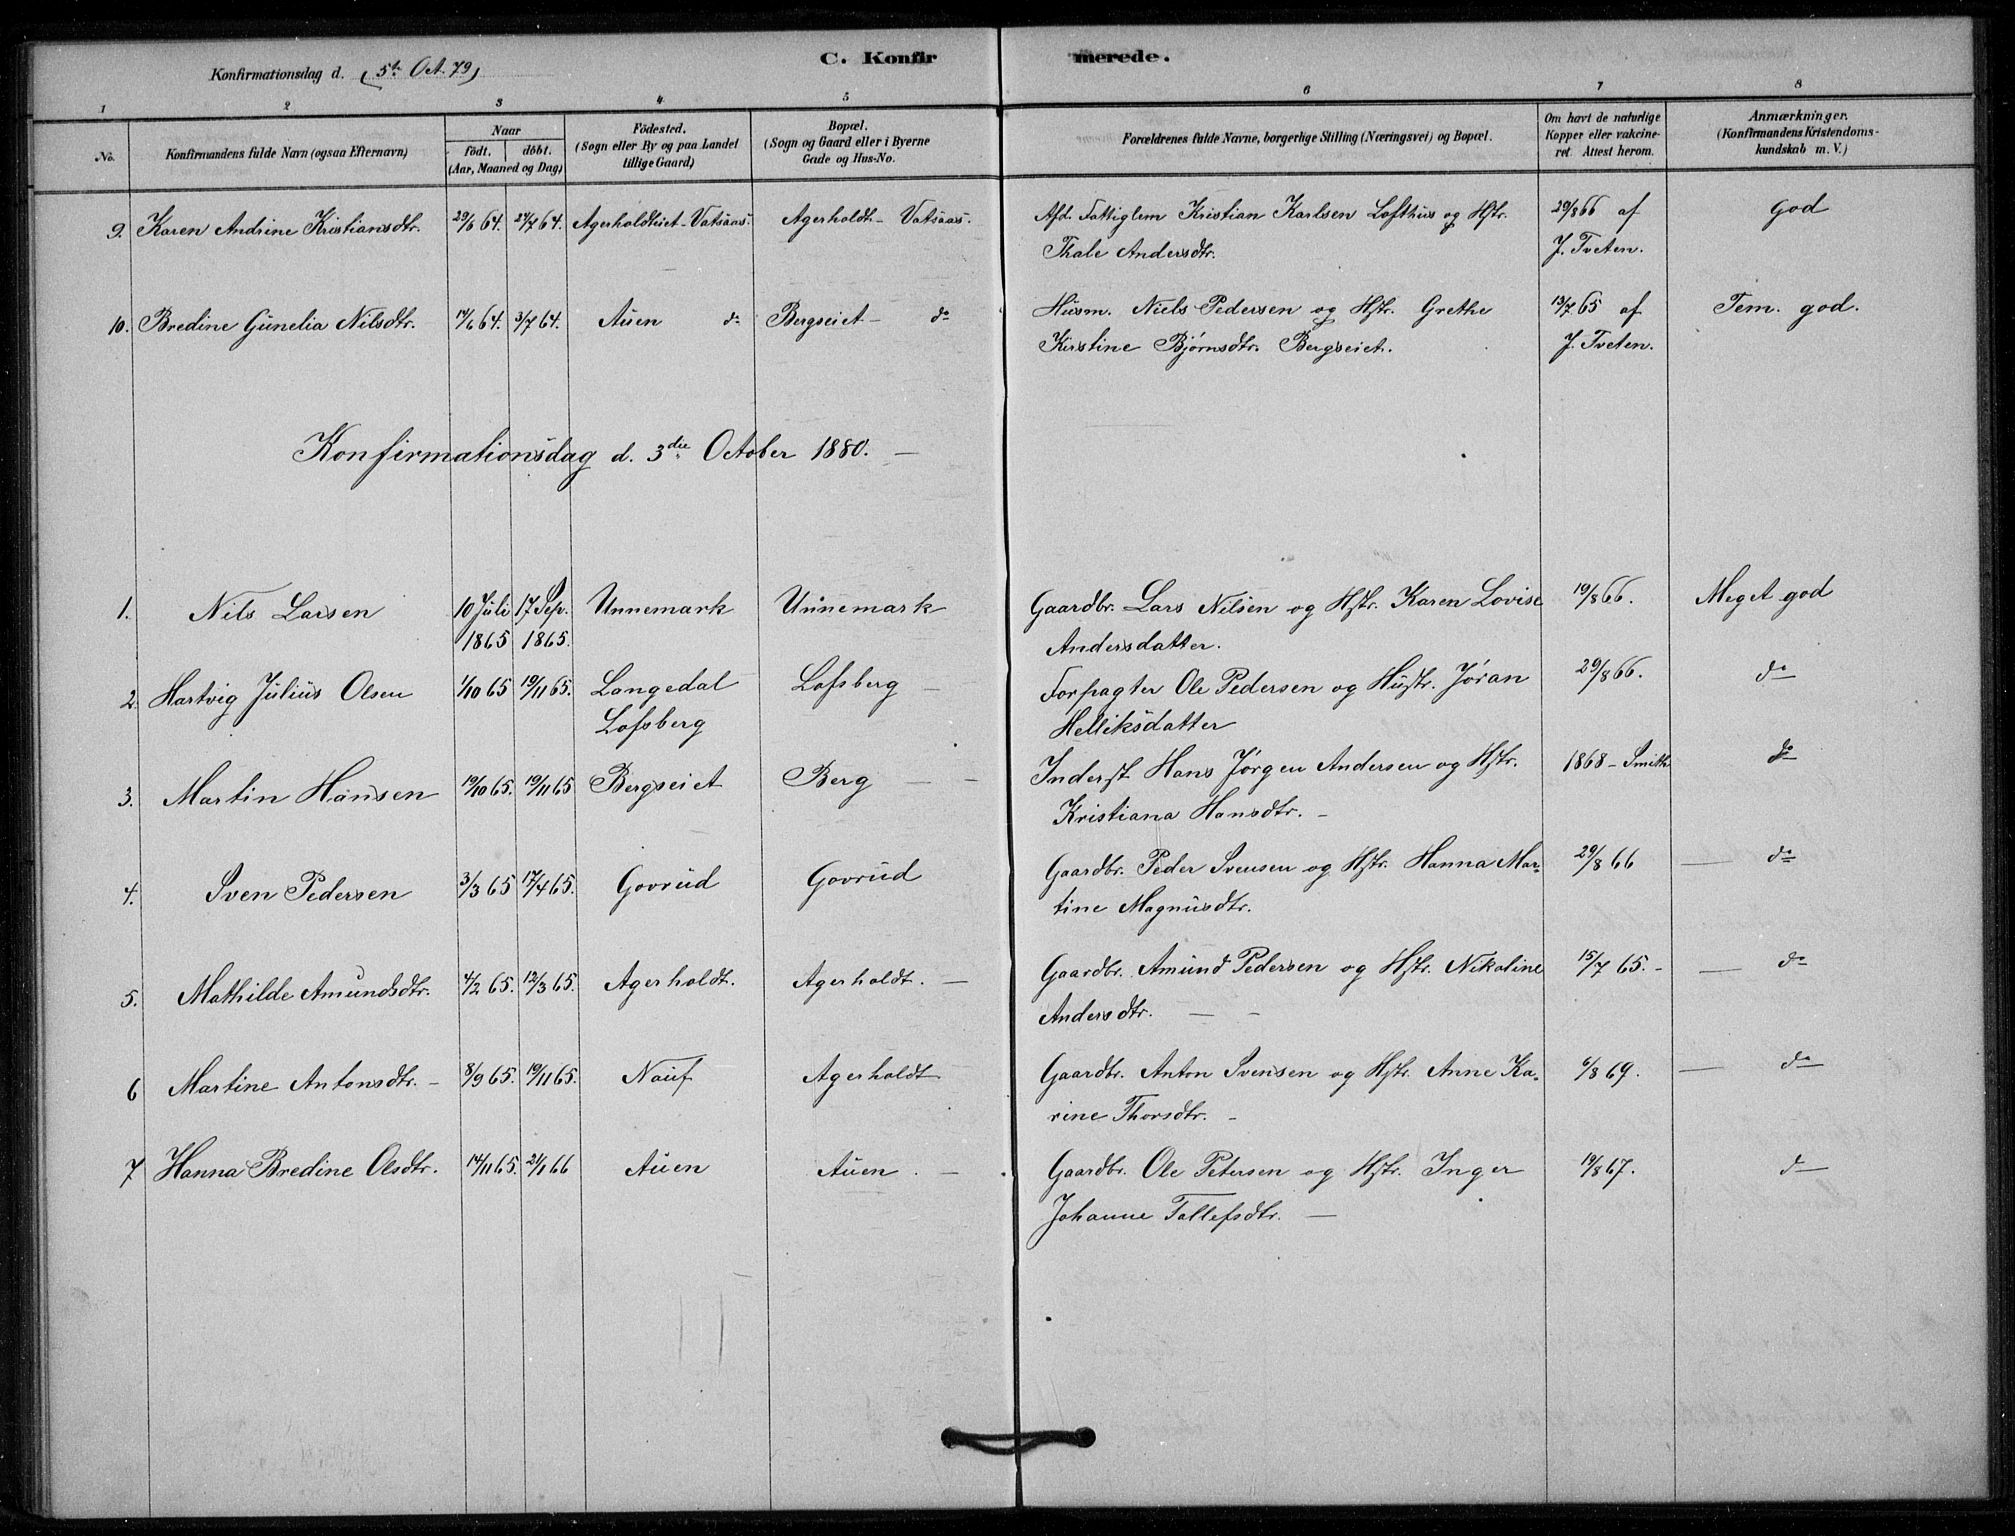 C. Konfirmerede.
Konfirmationsdag d. (5te Oct. 79)
1 2 3 4 5 6 7 8
No. Konfirmandens fulde Navn (ogsaa Efternavn) Naar født. døbt. (Aar, Maaned og Dag) Fødested. (Sogn eller By og paa Landet tillige Gaard) Bopæl. (Sogn og Gaard eller i Byerne Gade og Hus-No. Forældrenes fulde Navne, borgerlige Stilling (Næringsvei) og Bopæl. Om havt de naturlige Kopper eller vakcineret. Attest herom. Anmærkninger. (Konfirmandens Kristendomskundskab m. V.)
9. Karen Andrine Kristiansdtr. 29/6 64. 24/7 64. Agerholdteiet-Vatsaas. Agerholdt- Vatsaas. Afd. Fattiglem Kristian Karlsen Lofthus og Hstr. 29/8 66 af God
Thale Andersdtr. J. Tveten.
10. Bredine Gunelia Nilsdtr. 14/6 64. 3/7 64. Auen do Bergseiet- do Husm. Niels Pedersen og Hstr. Grethe 13/7 65 af Tem. god.
Kirstine Bjørnsdtr. Bergseiet. J. Tveten.
Konfirmationsdag d. 3die October 1880. —
1. Nils Larsen 10 Juli 17 Sep. Unnemark Unnemark Gaardbr. Lars Nilsen og Hstr. Karen Lovise 19/8 66. Meget god
1865 1865. Andersdatter.
2. Hartvig Julius Olsen 1/10 65 19/11 65. Langedal Lofsberg — Forpagter Ole Pedersen og Hustr. Jøran 29/8 66. do
Lofsberg Helliksdatter
3. Martin Hansen 19/10 65. 19/11 65 Bergseiet Berg — — Inderst Hans Jørgen Andersen og Hstr. 1868 - Smith do
Kristiana Hansdtr. -
4. Sven Pedersen 3/3 65 17/4 65. Govrud Govrud Gaardbr. Peder Svensen og Hstr. Hanna Mar- 29/8 66 — do
tine Magnusdtr.
5. Mathilde Amundsdtr. 4/2 65. 12/3 65. Agerholdt. Agerholdt. — Gaardbr. Amund Pedersen og Hstr. Nikoline 15/7 65. - — do
Andersdtr. — -
6 Martine Antonsdtr. - 8/9 65. 19/11 65. Nauf Agerholdt Gaardbr. Anton Svensen og Hstr. Anne Ka- 6/8 69. — do
rine Thorsdtr. -
7 Hanna Bredine Olsdtr. 14/11 65. 21/1 66 Auen Auen. — Gaardbr. Ole Petersen og Hstr. Inger 19/8 67. do
Johanne Tollefsdtr. —